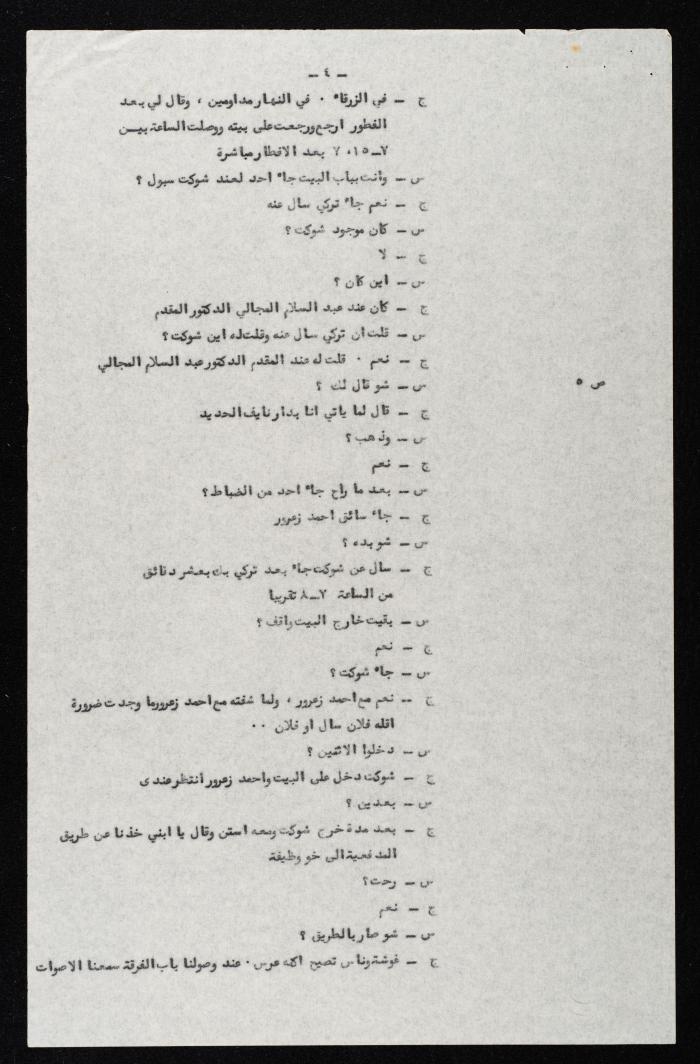 ـ ٤ ـ
ج ـ في الزرقاء . في النهار مداومين ، وقال لي بعد
الفطور ارجع ورجعت على بيته ووصلت الساعة بيــن
٧ـ٧،١٥ بعد الافطار مباشرة
س ـ وانت بباب البيت جاء احد لعند شوكت سبول ؟
ج ـ نعم جاء تركي سال عنه
س ـ كان موجود شوكت ؟
ج ـ لا
س ـ اين كان ؟
ج ـ كان عند عبد السلام المجالي الدكتور المقدم
س ـ قلت ان تركي سال عنه وقلت له اين شوكت ؟
ج ـ نعم . قلت له عند المقدم الدكتور عبد السلام المجالي
ص ٥
س ـ شو قال لك ؟
ج ـ قال لما ياتي انا بدار نايف الحديد
س ـ وذهب ؟
ج ـ نعم
س ـ بعد ما راح جاء احد من الضباط ؟
ج ـ جاء سائق احمد زعرور
س ـ شو بده ؟
ج ـ سال عن شوكت جاء بعد تركي بك بعشر دقائق
من الساعة ٧ـ٨ تقريبا
س ـ بقيت خارج البيت واقف ؟
ج ـ نعم
س ـ جاء شوكت ؟
ج ـ نعم مع احمد زعرور ، ولما شفته مع احمد زعرور ما وجدت ضرورة
اقله فلان سال او فلان ..
س ـ دخلوا الاثنين ؟
ج ـ شوكت دخل على البيت واحمد زعرور انتظر عندى
س ـ بعدين ؟
ج ـ بعد مدة خرج شوكت ومعه استن وقال يا ابني خذنا عن طريق
المدفعية الى خو وظيفة
س ـ رحت ؟
ج ـ نعم
س ـ شو صار بالطريق ؟
ج ـ وناس تصيح عرس . عند وصولنا باب الفرقة سمعنا الاصوات